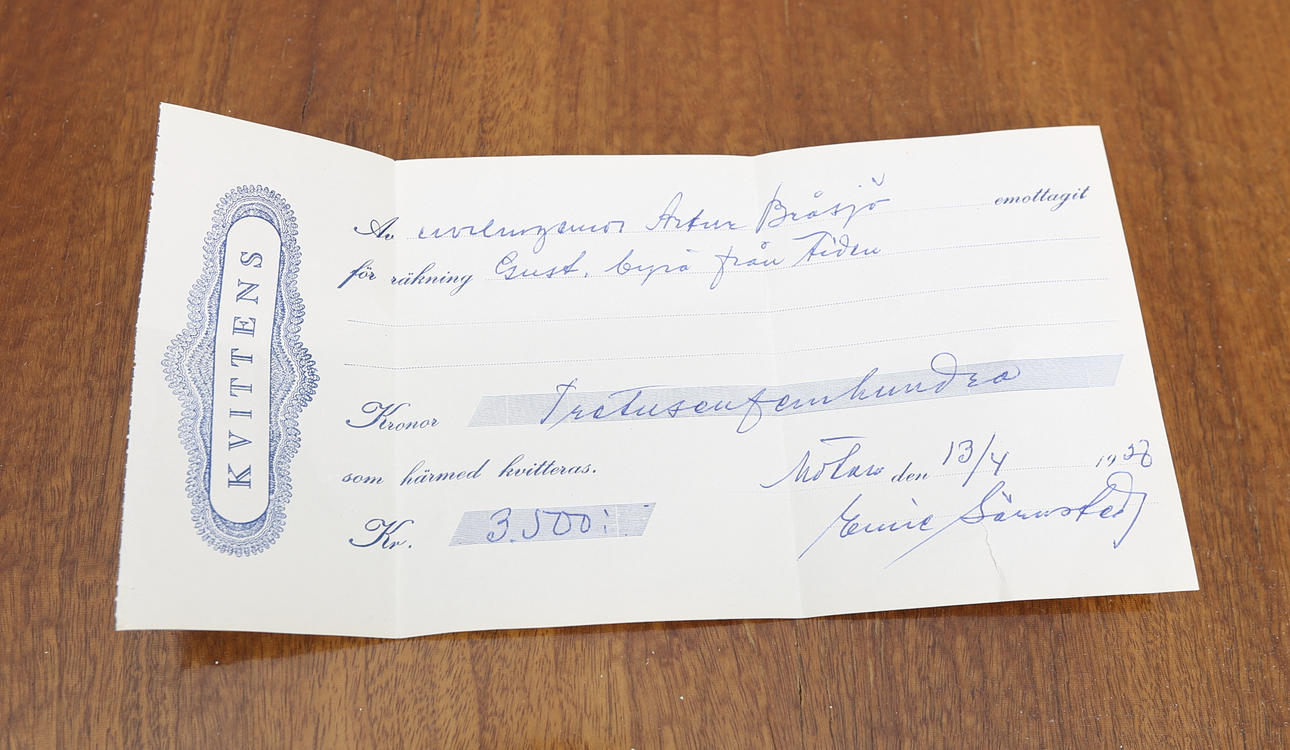 KVITTENS
Av civilingeniör Artur Bråsjö emottagit
för räkning Gust. byrå från Tiden
Kronor Tretusenfemhundra
som härmed kvitteras.
den 13/4 19
Kr. 3.500:
Emie Särnstedt